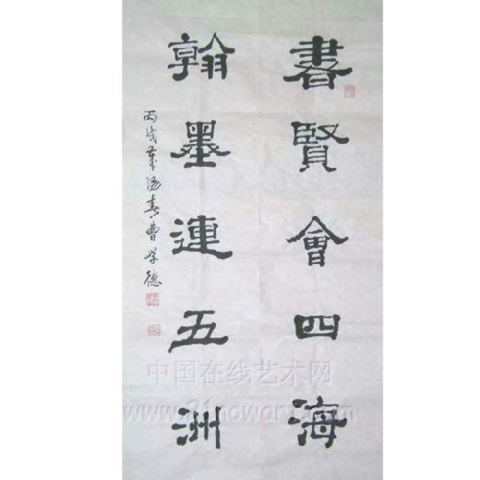 書賢會四海
翰墨連五洲
丙戌 曹学德
中国在线艺术网
www.21nowart.com